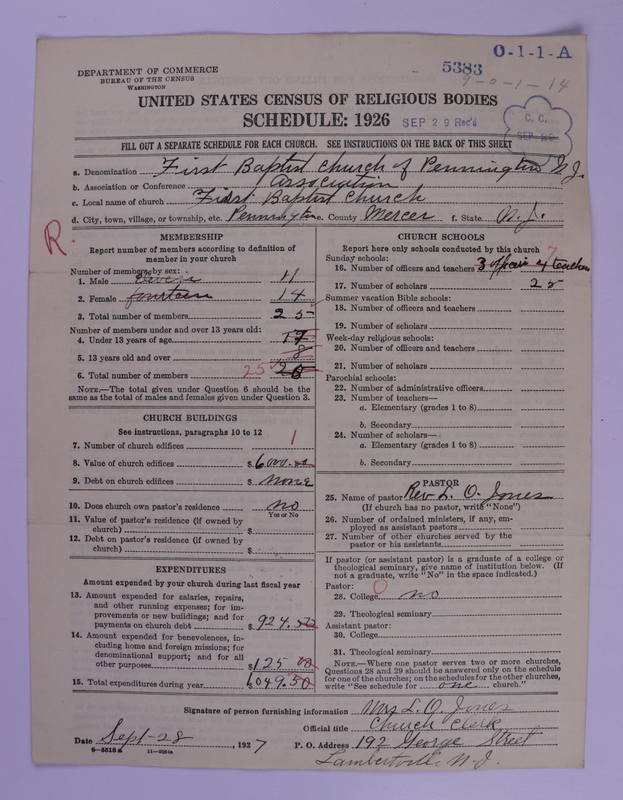 O-1-1-A
5383
9-0-1-14
DEPARTMENT OF COMMERCE
BUREAU OF THE CENSUS
WASHINGTON
UNITED STATES CENSUS OF RELIGIOUS BODIES
SCHEDULE: 1926
SEP 29 Rec'd
C. C.
FILL OUT A SEPARATE SCHEDULE FOR EACH CHURCH. SEE INSTRUCTIONS ON THE BACK OF THIS SHEET
a. Denomination First Baptist Church of Pennington N.J.
b. Association or Conference Association
c. Local name of church First Baptist Church
d. City, town, village, or township, etc. Pennington e. County Mercer f. State N.J.
R.
MEMBERSHIP
Report number of members according to definition of
member in your church
Number of members by sex:
1. Male Eleven 11
2. Female fourteen 14
3. Total number of members 25
Number of members under and over 13 years old:
4. Under 13 years of age 17
5. 13 years old and over 8
6. Total number of members 25 25
NOTE.—The total given under Question 6 should be the
same as the total of males and females given under Question 3.
CHURCH BUILDINGS
See instructions, paragraphs 10 to 12
7. Number of church edifices 1
8. Value of church edifices $6,000.00
9. Debt on church edifices $ none
10. Does church own pastor's residence? no
Yes or No
11. Value of pastor's residence (if owned by
church) $
12. Debt on pastor's residence (if owned by
church) $
EXPENDITURES
Amount expended by your church during last fiscal year
13. Amount expended for salaries, repairs,
and other running expenses; for im-
provements or new buildings; and for
payments on church debt $924.50
14. Amount expended for benevolences, in-
cluding home and foreign missions; for
denominational support; and for all
other purposes $125 00
15. Total expenditures during year 1,049.50
CHURCH SCHOOLS
Report here only schools conducted by this church
Sunday schools: 7
16. Number of officers and teachers 3 officers 4 teachers
17. Number of scholars 25
Summer vacation Bible schools:
18. Number of officers and teachers
19. Number of scholars
Week-day religious schools:
20. Number of officers and teachers
21. Number of scholars
Parochial schools:
22. Number of administrative officers
23. Number of teachers—
a. Elementary (grades 1 to 8)
b. Secondary
24. Number of scholars—
a. Elementary (grades 1 to 8)
b. Secondary
PASTOR
25. Name of pastor Rev. L. O. Jones
(If church has no pastor, write "None")
26. Number of ordained ministers, if any, em-
ployed as assistant pastors
27. Number of other churches served by the
pastor or his assistants
If pastor (or assistant pastor) is a graduate of a college or
theological seminary, give name of institution below. (If
not a graduate, write "No" in the space indicated.)
Pastor: 0
28. College no
29. Theological seminary
Assistant pastor:
30. College
31. Theological seminary
NOTE.—Where one pastor serves two or more churches,
Questions 28 and 29 should be answered only on the schedule
for one of the churches; on the schedules for the other churches,
write "See schedule for one church."
Signature of person furnishing information Mrs L. O. Jones
Official title Church Clerk
Date Sept-28, 1927 P. O. Address 192 George Street
8—5518a 11—9064a
Lambertville, N-J.